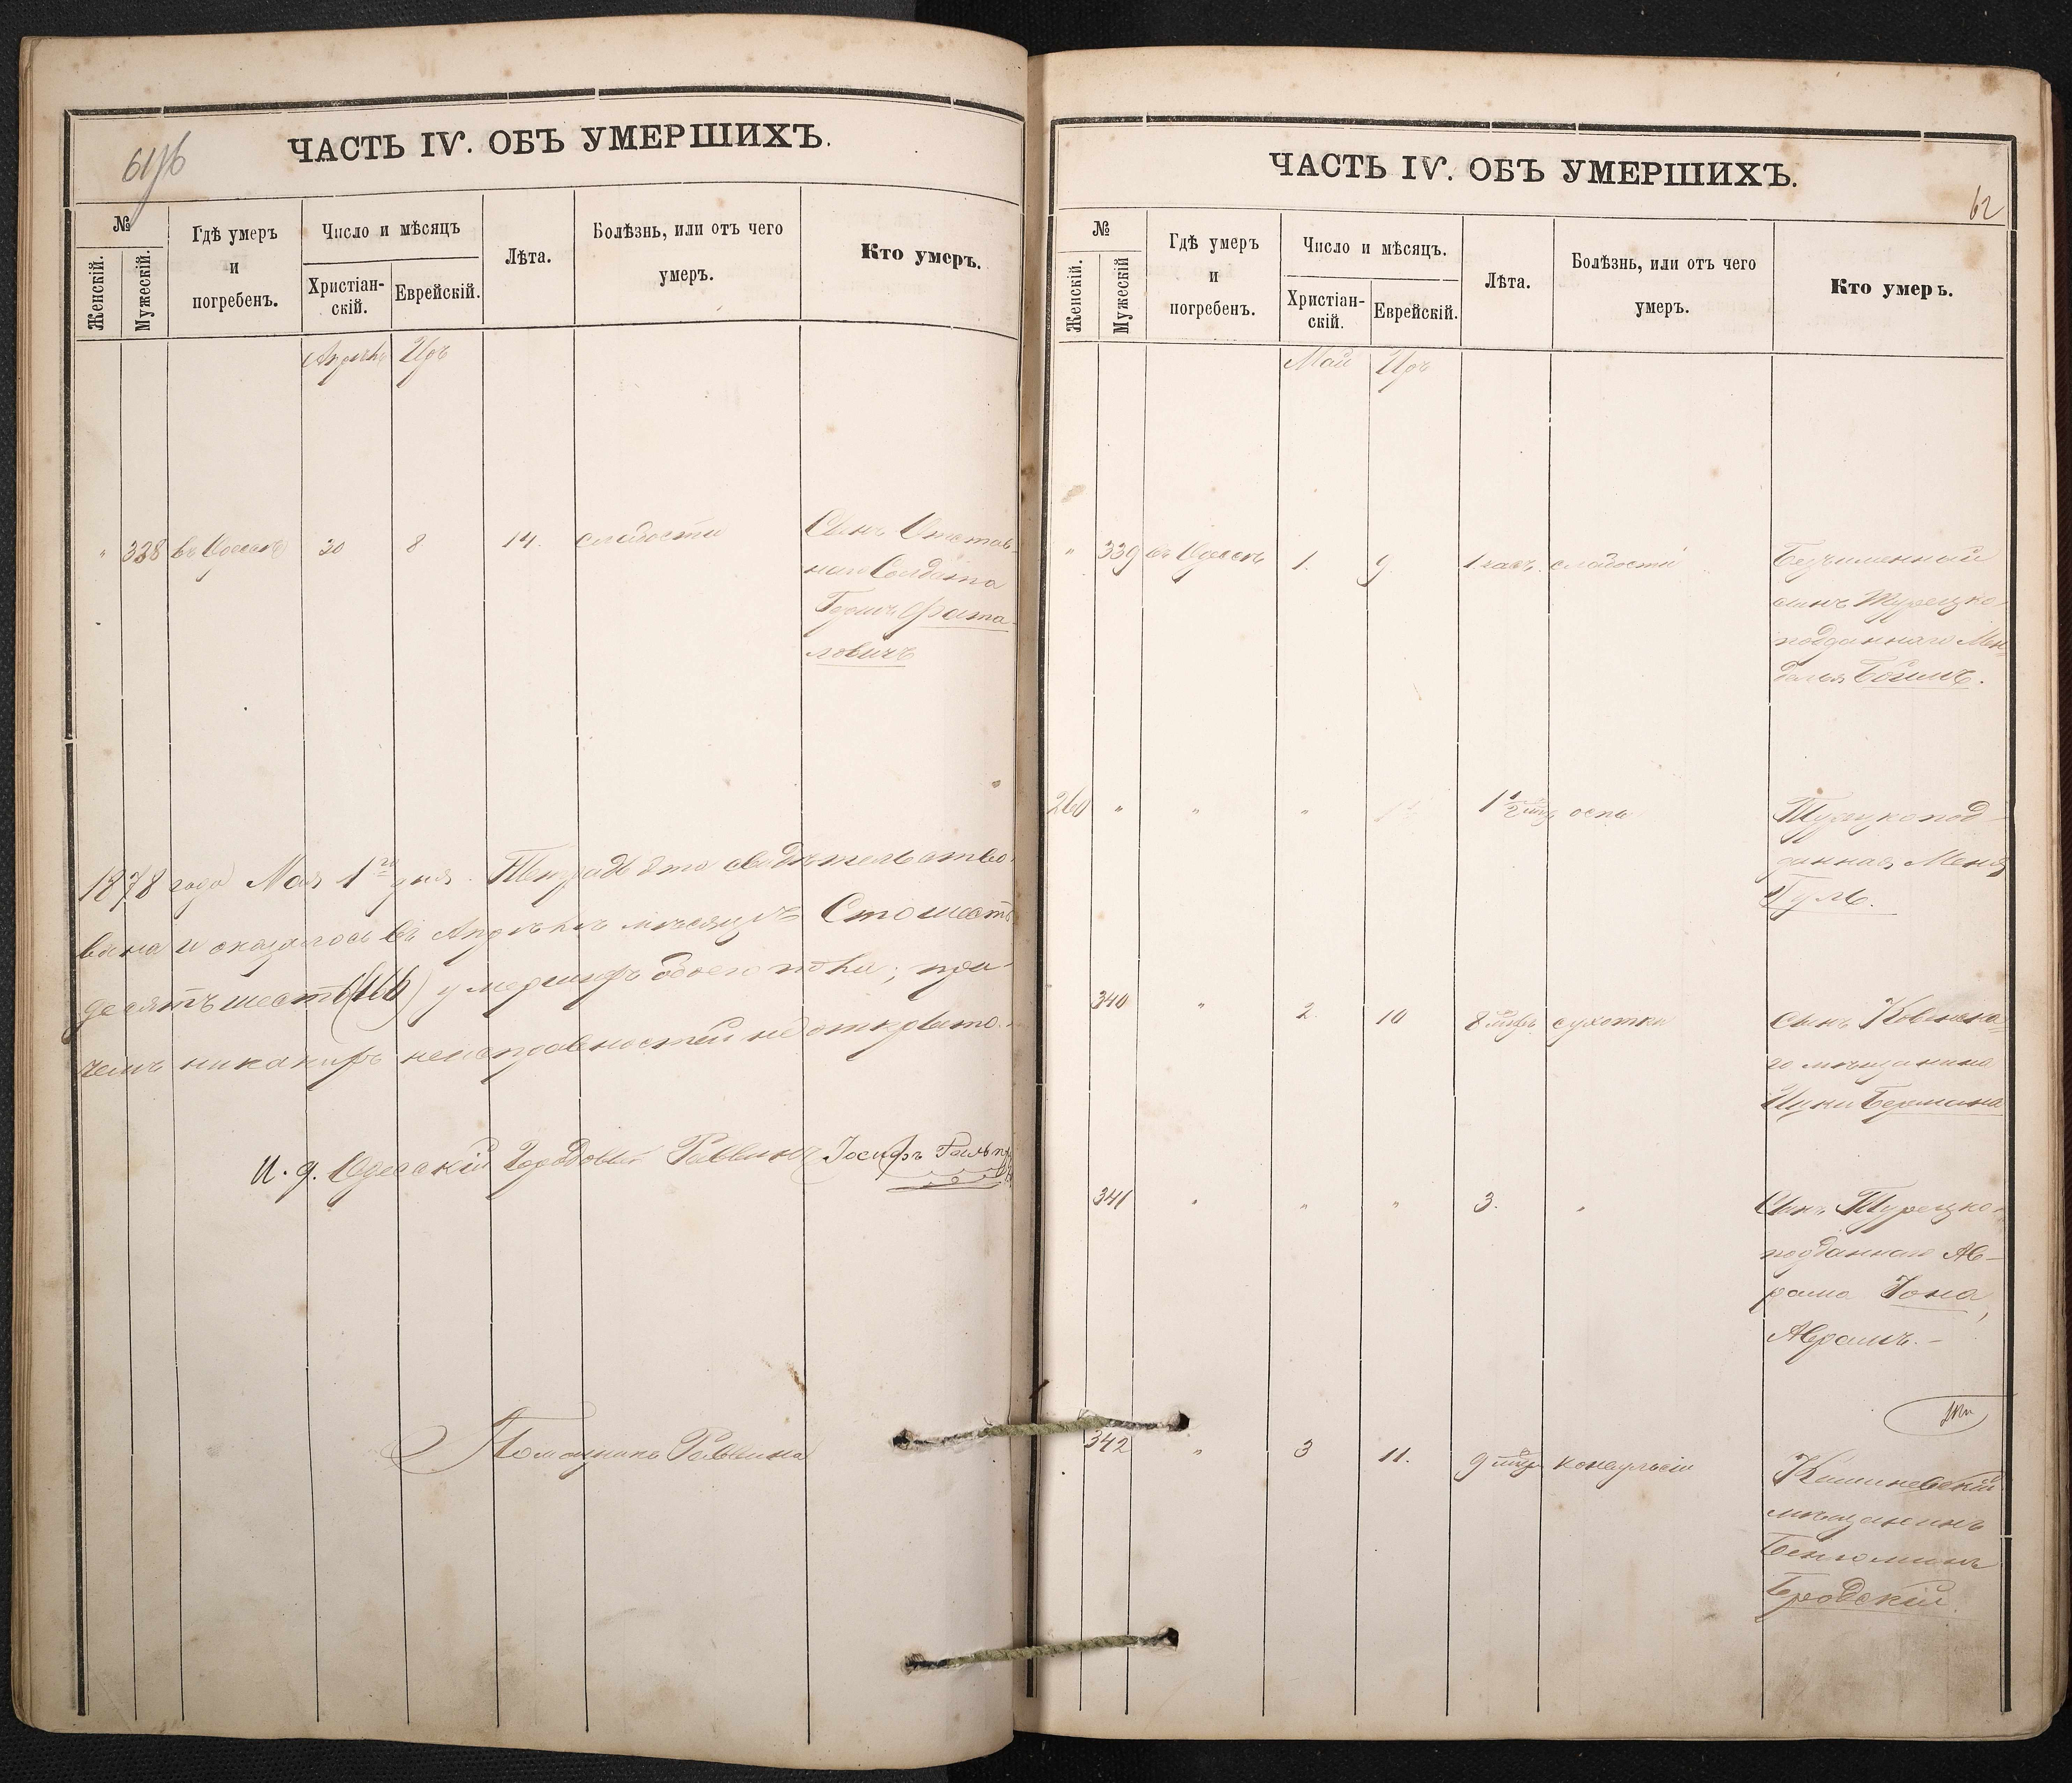 ЧАСТЬ IV. ОБЪ УМЕРШИХЪ.
№
Женскій.
Мужескій.
Гдѣ умеръ
и
погребенъ.
Число и мѣсяцъ
Христіан-
скій.
Еврейскій.
Лѣта.
Болѣзнь, или отъ чего
умеръ.
Кто умеръ.
Апрѣль Иръ
" 338 въ Одессѣ 30 8 14. слабости Сынъ Отстав-
наго Солдата
лович
1878 года Мая 1го дня. Тетрадь эта свидѣтельство-
вана и оказалось въ Апрѣлѣ мѣсяцѣ Сто шесть
десятъ шесть (166) умершихъ обоего пола; при
чемъ никакихъ неисправностей не открыто.
И. д. Одесскій Городовой Раввинъ Іосифъ
Помощникъ Раввина
ЧАСТЬ IV. ОБЪ УМЕРШИХЪ.
62
№
Женскій.
Мужескій
Гдѣ умеръ
и
погребенъ.
Число и мѣсяцъ.
Христіан-
скій.
Еврейскій.
Лѣта.
Болѣзнь, или отъ чего
умеръ.
Кто умеръ.
Май Иръ
" 339 въ Одессѣ 1. 9 1 часъ. слабости Безъименный
сынъ Турецко-
подданнаго Мен-
деля
260 " " " 1 1/2 оспы Турецкопод-
данная Меня
340 " 2. 10 8 мѣс. сухотки Сынъ Ковенска-
го мѣщанина
Ицки Бермана
341 " " " 3. " Сынъ Турецко-
подданнаго Ав-
рама Іона,
Аврамъ. -
342 " 3 11. 9 мѣс. конвульсіи Кишиневскій
мѣщанинъ
Беньюминъ
Бродскій.